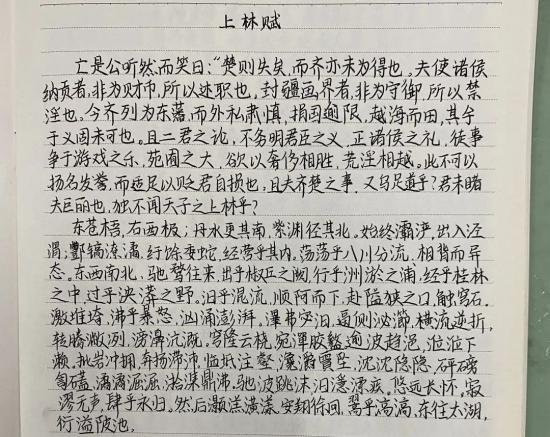 上林赋
亡是公听然而笑曰:“楚则失矣,而齐亦未为得也。夫使诸侯
纳贡者,非为财币,所以述职也,封疆画界者,非为守御,所以禁
淫也。今齐列为东藩,而外私肃慎,捐国逾限,越海而田,其于
义固未可也。且二君之论,不务明君臣之义,正诸侯之礼,徒事
争于游戏之乐,苑囿之大,欲以奢侈相胜,荒淫相越。此不可以
扬名发誉,而适足以贬君自损也,且夫齐楚之事,又乌足道乎?君未睹
夫巨丽也,独不闻天子之上林乎?
东苍梧,右西极;丹水更其南,紫渊径其北。始终灞浐,出入泾
渭;酆镐潦潏,纡馀委蛇,经营乎其内,荡荡乎八川分流,相背而异
态。东西南北,驰骛往来,出乎椒丘之阙,行乎洲淤之浦,经乎桂林
之中,过乎泱漭之野。汩乎混流,顺阿而下,赴隘狭之口,触穹石,
激堆埼,沸乎暴怒,汹涌澎湃。滭弗宓汩,逼侧泌瀄,横流逆折,
转腾潎洌,滂濞沆溉。穹隆云桡,宛潬胶盭,逾波趋浥,涖涖下
濑,批岩冲拥,奔扬滞沛,临坻注壑,瀺灂霣坠,沈沈隐隐,砰磅
訇磕,潏潏淈淈,湁潗鼎沸,驰波跳沫,汩漂疾,悠远长怀,寂
漻无声,肆乎永归。然后灏溔潢漾,安翔徐回,翯乎滈滈,东注太湖,
衍溢陂池,